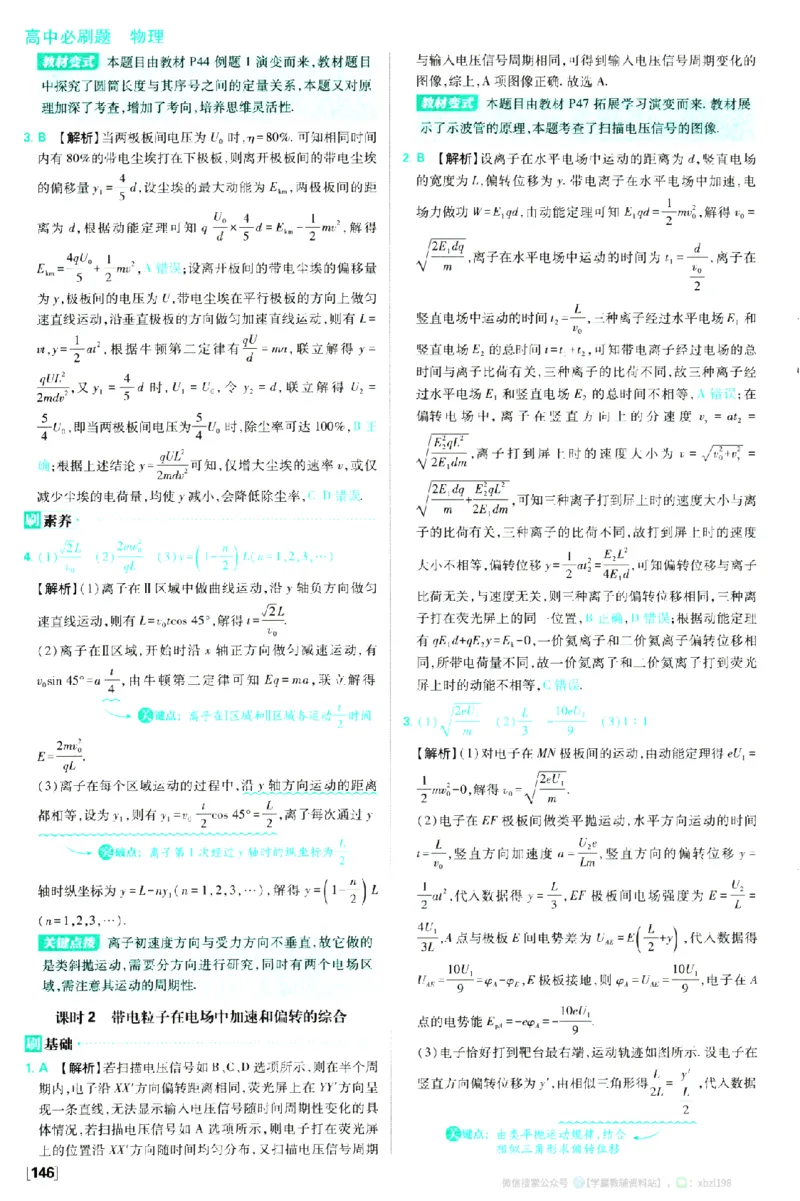 高中必刷题 物理
教材变式 本题目由教材 P44 例题 1 演变而来,教材题目
中探究了圆筒长度与其序号之间的定量关系,本题又对原
理加深了考查,增加了考向,培养思维灵活性.
3. B 【解析】当两极板间电压为 U₀ 时,η=80%. 可知相同时间
内有 80%的带电尘埃打在下极板,则离开极板间的带电尘埃
的偏移量 y₁ = 4/5 d,设尘埃的最大动能为 Eₖₘ,两极板间的距
离为 d,根据动能定理可知 q U₀/d × 4/5 d = Eₖₘ − 1/2 mv²,解得
Eₖₘ = 4qU₀/5 + 1/2 mv²,A 错误;设离开板间的带电尘埃的偏移量
为 y,极板间的电压为 U,带电尘埃在平行极板的方向上做匀
速直线运动,沿垂直极板的方向做匀加速直线运动,则有 L=
vt,y= 1/2 at²,根据牛顿第二定律有 qU/d = ma,联立解得 y =
qUL²/2mdv²,又 y₁ = 4/5 d 时,U₁ = U₀,令 y₂ = d,联立解得 U₂ =
5/4 U₀,即当两极板间电压为 5/4 U₀ 时,除尘率可达 100%,B 正
确;根据上述结论 y= qUL²/2mdv² 可知,仅增大尘埃的速率 v,或仅
减少尘埃的电荷量,均使 y 减小,会降低除尘率,C、D 错误.
刷 素养
4. (1) √2L/v₀ (2) 2mv₀²/qL (3) y=(1− n/2)L(n=1,2,3,…)
【解析】(1)离子在 Ⅱ 区域中做曲线运动,沿 y 轴负方向做匀
速直线运动,则有 L=v₀tcos 45°,解得 t= √2L/v₀.
(2)离子在Ⅱ区域,开始时沿 x 轴正方向做匀减速运动,有
v₀sin 45°=a t/4,由牛顿第二定律可知 Eq = ma,联立解得
关键点:离子在Ⅰ区域和Ⅱ区域各运动 t/2 时间
E= 2mv₀²/qL.
(3)离子在每个区域运动的过程中,沿 y 轴方向运动的距离
都相等,设为 y₁,则有 y₁=v₀ t/2 cos 45°= L/2,离子每次通过 y
关键点:离子第 1 次经过 y 轴时的纵坐标为 L/2
轴时纵坐标为 y=L-ny₁(n=1,2,3,…),解得 y=(1− n/2)L
(n=1,2,3,…).
关键点拨 离子初速度方向与受力方向不垂直,故它做的
是类斜抛运动,需要分方向进行研究,同时有两个电场区
域,需注意其运动的周期性.
课时 2 带电粒子在电场中加速和偏转的综合
刷 基础
1. A 【解析】若扫描电压信号如 B、C、D 选项所示,则在半个周
期内,电子沿 XX′方向偏转距离相同,荧光屏上在 YY′方向呈
现一条直线,无法显示输入电压信号随时间周期性变化的具
体情况,若扫描电压信号如 A 选项所示,则电子打在荧光屏
上的位置沿 XX′方向随时间均匀分布,又扫描电压信号周期
[146]
与输入电压信号周期相同,可得到输入电压信号周期变化的
图像,综上,A 项图像正确. 故选 A.
教材变式 本题目由教材 P47 拓展学习演变而来. 教材展
示了示波管的原理,本题考查了扫描电压信号的图像.
2 B 【解析】设离子在水平电场中运动的距离为 d,竖直电场
的宽度为 L,偏转位移为 y. 带电离子在水平电场中加速,电
场力做功 W=E₁qd,由动能定理可知 E₁qd= 1/2 mv₀²,解得 v₀ =
√(2E₁dq/m),离子在水平电场中运动的时间为 t₁ = d/(v₀/2),离子在
竖直电场中运动的时间 t₂= L/v₀,三种离子经过水平电场 E₁ 和
竖直电场 E₂ 的总时间 t=t₁+t₂,可知带电离子经过电场的总
时间与离子比荷有关,三种离子的比荷不同,故三种离子经
过水平电场 E₁ 和竖直电场 E₂ 的总时间不相等,A 错误;在
偏转电场中,离子在竖直方向上的分速度 vᵧ = at₂ =
√(E₂²qL²/2E₁dm),离子打到屏上时的速度大小为 v = √(v₀²+vᵧ²) =
√(2E₁dq/m + E₂²qL²/2E₁dm),可知三种离子打到屏上时的速度大小与离
子的比荷有关,三种离子的比荷不同,故打到屏上时的速度
大小不相等,偏转位移 y= 1/2 at₂²= E₂L²/4E₁d,可知偏转位移与离子
比荷无关,与速度无关,则三种离子的偏转位移相同,三种离
子打在荧光屏上的同一位置,B 正确,D 错误;根据动能定理
有 qE₁d+qE₂y=Eₖ-0,一价氦离子和二价氦离子偏转位移相
同,所带电荷量不同,故一价氦离子和二价氦离子打到荧光
屏上时的动能不相等,C 错误.
3. (1) √(2eU₁/m) (2) L/3 − 10eU₁/9 (3)1∶1
【解析】(1)对电子在 MN 极板间的运动,由动能定理得 eU₁ =
1/2 mv₀²-0,解得 v₀= √(2eU₁/m).
(2)电子在 EF 极板间做类平抛运动,水平方向运动的时间
t= L/v₀,竖直方向加速度 a= U₂e/Lm,竖直方向的偏转位移 y=
1/2 at²,代入数据得 y= L/3,EF 极板间电场强度为 E= U₂/L =
4U₁/3L,A 点与极板 E 间电势差为 U_AE=E(L/2+y),代入数据得
U_AE= 10U₁/9 =φ_A-φ_E,E 极板接地,则 φ_A=U_AE= 10U₁/9,电子在 A
点的电势能 E_pA=-eφ_A=- 10eU₁/9.
(3)电子恰好打到靶台最右端,运动轨迹如图所示. 设电子在
竖直方向偏转位移为 y′,由相似三角形得 L/2L = y′/(L/2),代入数据
关键点:由类平抛运动规律,结合
相似三角形求偏转位移
微信搜索公众号 【学霸教辅资料站】, : xbzl198